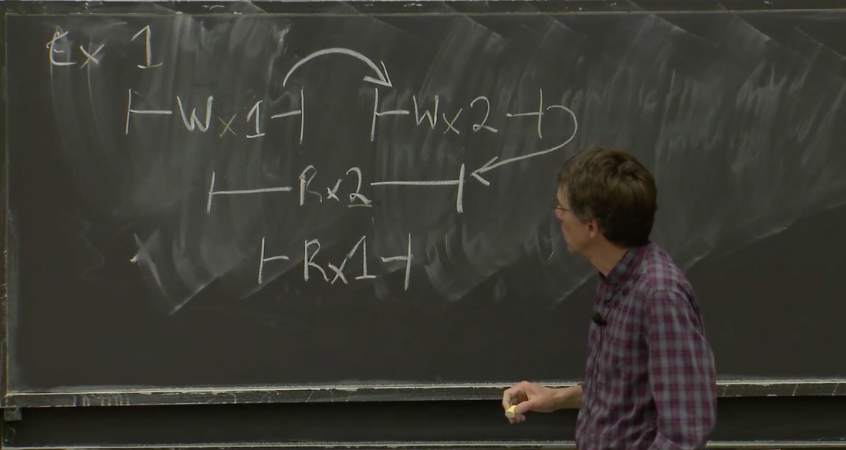 Ex 1
Wx1 Wx2
Rx2
Rx1